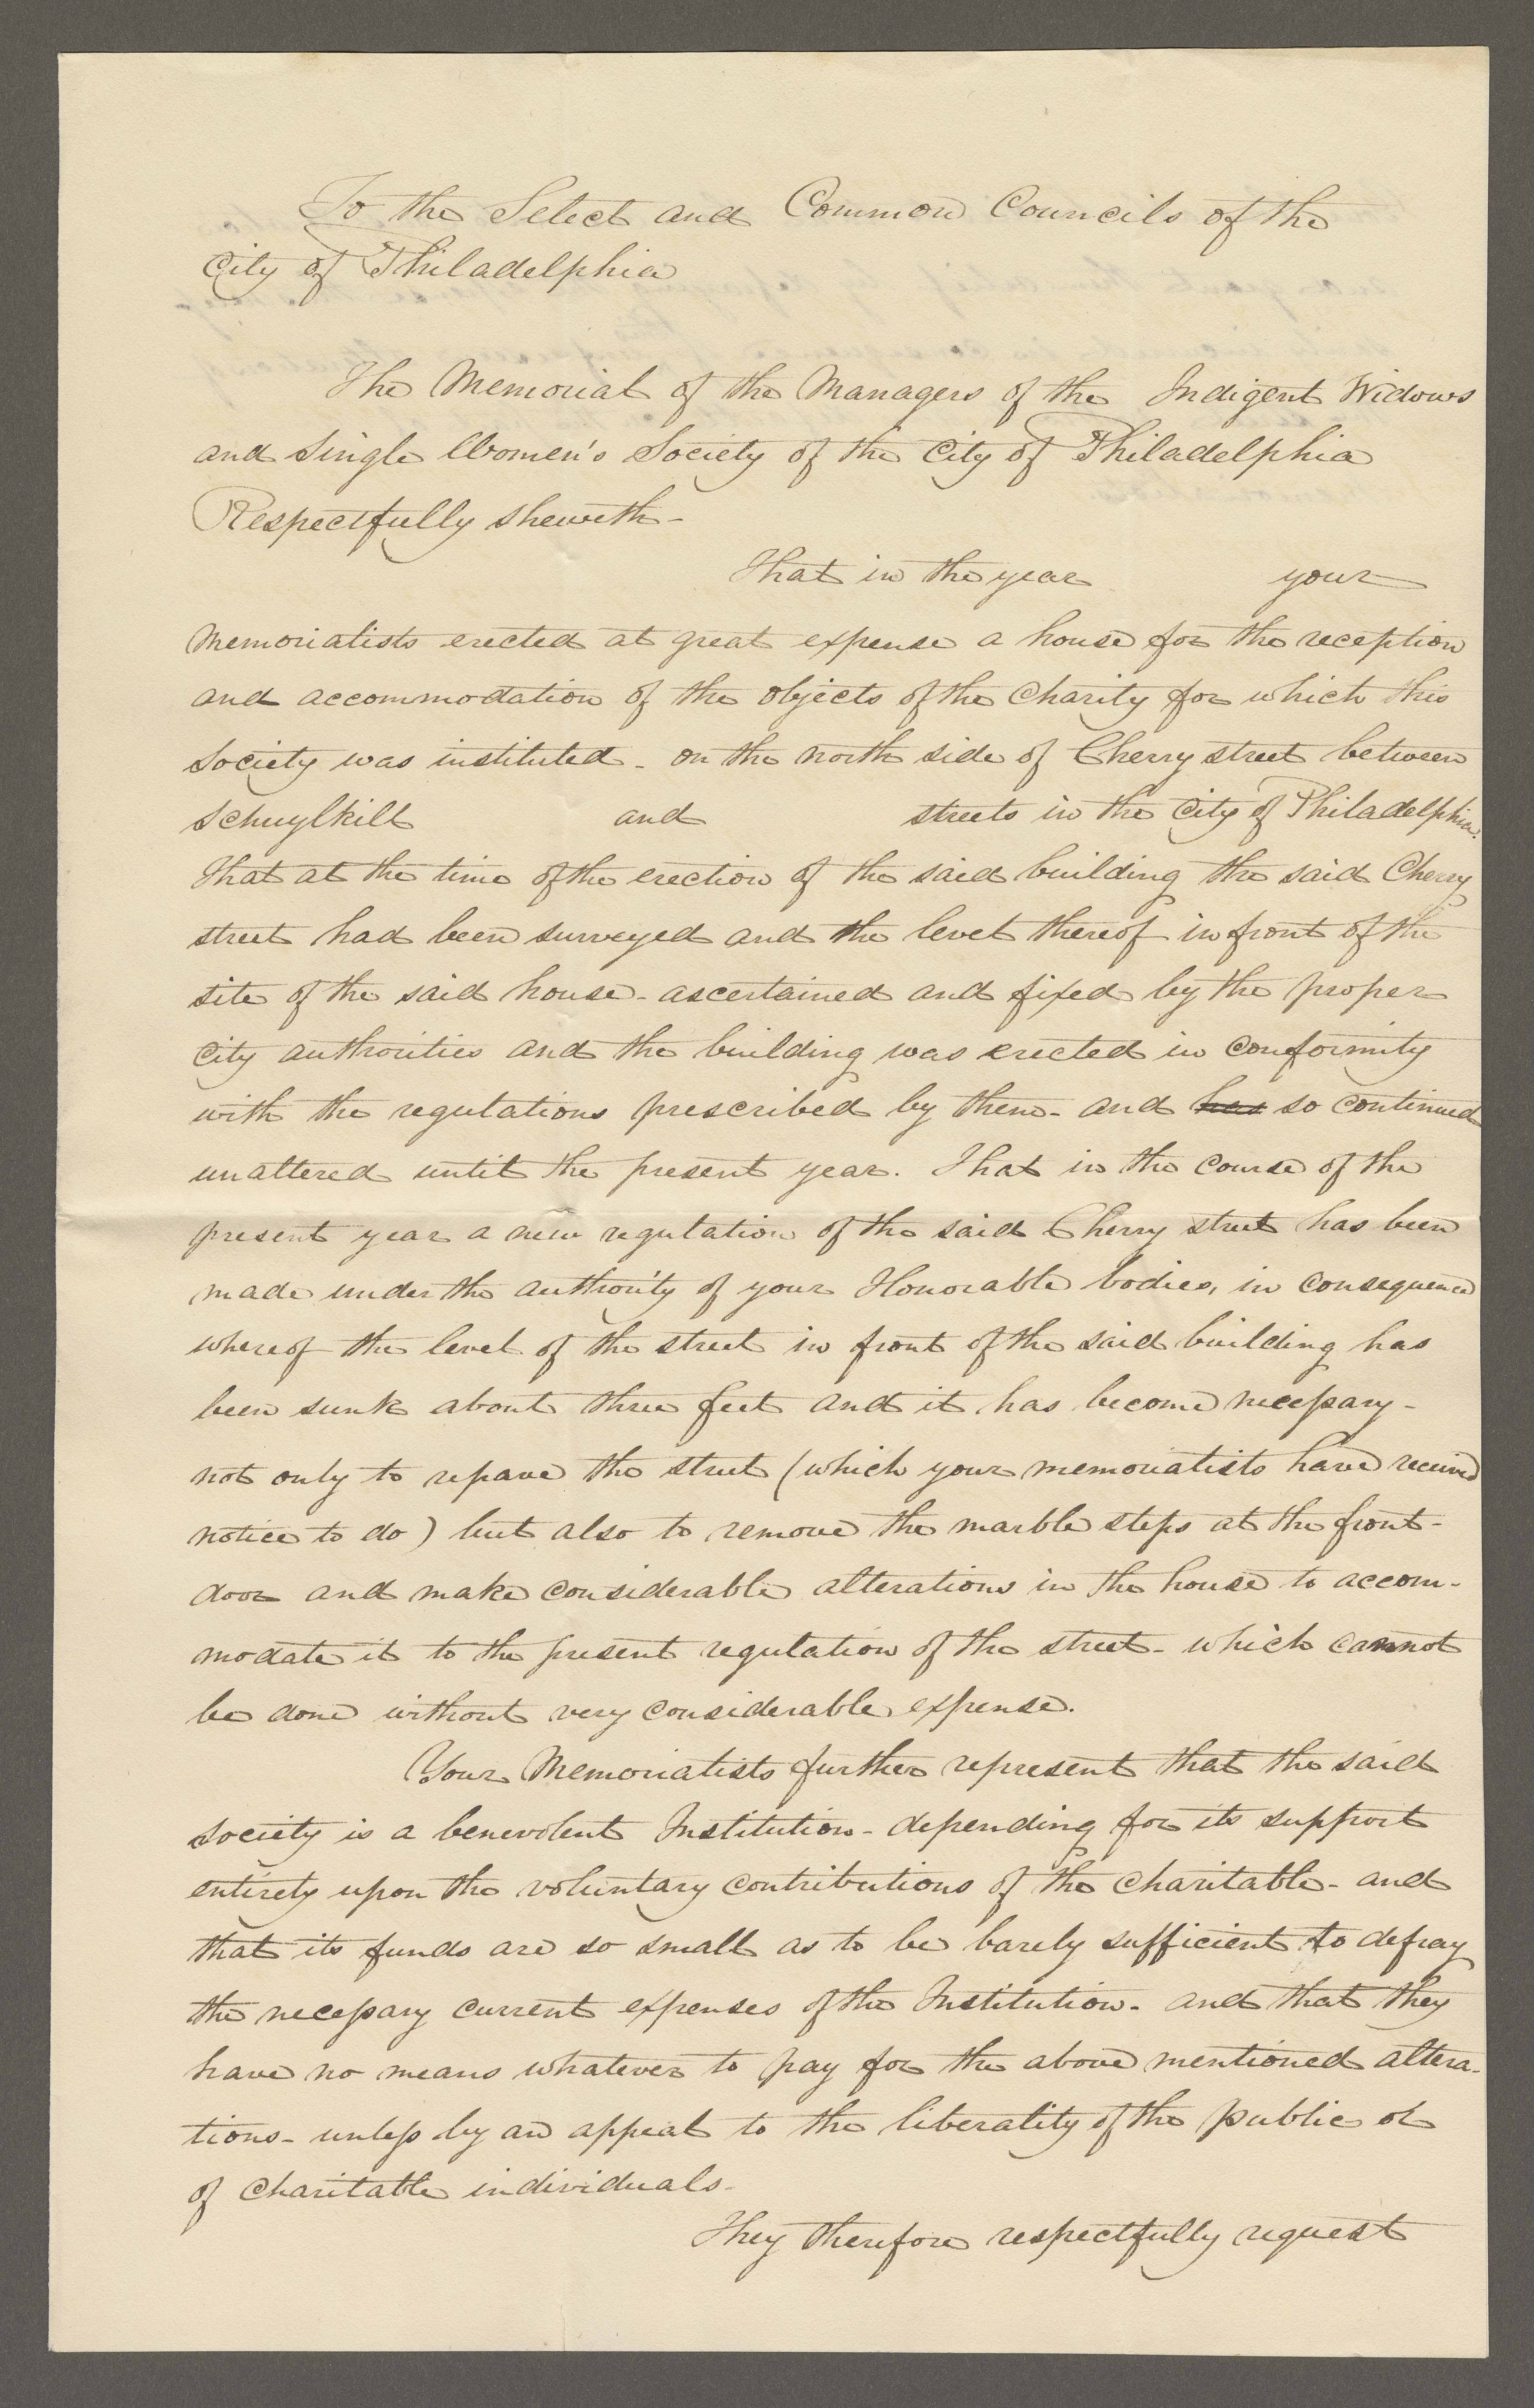 To the Select and Common Councils of the
City of Philadelphia
The Memorial of the Managers of the Indigent Widows
and Single Women's Society of the City of Philadelphia
Respectfully sheweth-
That in the year your
Memorialists erected at great expense a house for the reception
and accommodation of the objects of the Charity for which this
Society was instituted - on the north side of Cherry street between
Schuylkill and streets in the City of Philadelphia.
That at the time of the erection of the said building the said Cherry
street had been surveyed and the level thereof in front of the
site of the said house - ascertained and fixed by the proper
City authorities and the building was erected in conformity
with the regulations prescribed by them - and has so continued
unaltered until the present year. That in the course of the
present year a new regulation of the said Cherry street has been
made under the authority of your Honorable bodies, in consequence
whereof the level of the street in front of the said building has
been sunk about three feet and it has become necessary -
not only to repave the street (which your memorialists have received
notice to do) but also to remove the marble steps at the front-
door and make considerable alterations in the house to accom-
modate it to the present regulation of the street - which cannot
be done without very considerable expense.
Your Memorialists further represent that the said
society is a benevolent Institution - depending for its support
entirely upon the voluntary contributions of the charitable - and
that its funds are so small as to be barely sufficient to defray
the necessary current expenses of the Institution - and that they
have no means whatever to pay for the above mentioned altera-
tions - unless by an appeal to the liberality of the public or
of charitable individuals -
They therefore respectfully request